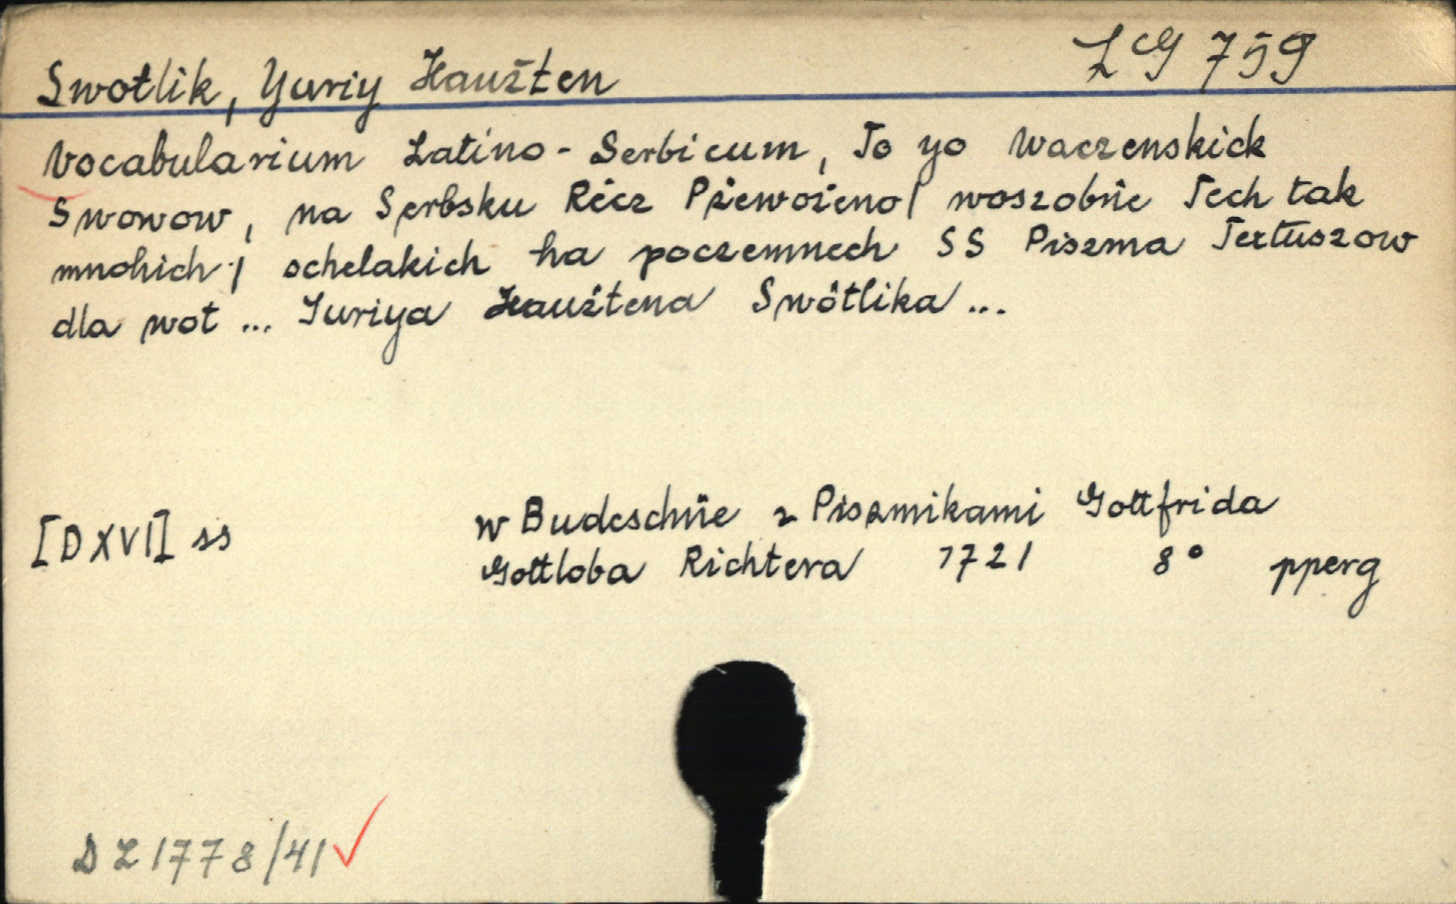 Swotlik, Yuriy Haużten LG 759
Vocabularium Latino-Serbicum, To yo Waczenskick
Swowow, na Serbsku Récz Pżewożeno/ woszobńe Tech tak
mnohich / schelakich ha poczemnech SS Piszma Textuszow
dla wot ... Juriya Haużtena Swótlika ...
[DXVI] ss w Budeschńe z Piszmikami Gottfrida
Gottloba Richtera 1721 8° pperg
DZ 1778/41